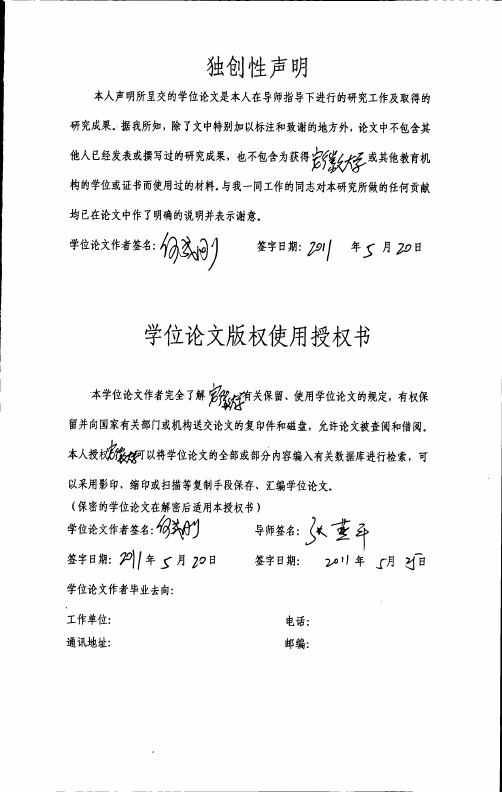 独创性声明
本人声明所呈交的学位论文是本人在导师指导下进行的研究工作及取得的
研究成果。据我所知，除了文中特别加以标注和致谢的地方外，论文中不包含其
他人已经发表或撰写过的研究成果，也不包含为获得安徽大学或其他教育机
构的学位或证书而使用过的材料。与我一同工作的同志对本研究所做的任何贡献
均已在论文中作了明确的说明并表示谢意。
学位论文作者签名： 签字日期：2011 年 5 月 20 日
学位论文版权使用授权书
本学位论文作者完全了解安徽大学有关保留、使用学位论文的规定，有权保
留并向国家有关部门或机构送交论文的复印件和磁盘，允许论文被查阅和借阅。
本人授权安徽大学可以将学位论文的全部或部分内容编入有关数据库进行检索，可
以采用影印、缩印或扫描等复制手段保存、汇编学位论文。
（保密的学位论文在解密后适用本授权书）
学位论文作者签名： 导师签名：张燕平
签字日期：2011 年 5 月 20 日 签字日期： 2011 年 5 月 日
学位论文作者毕业去向：
工作单位： 电话：
通讯地址： 邮编：